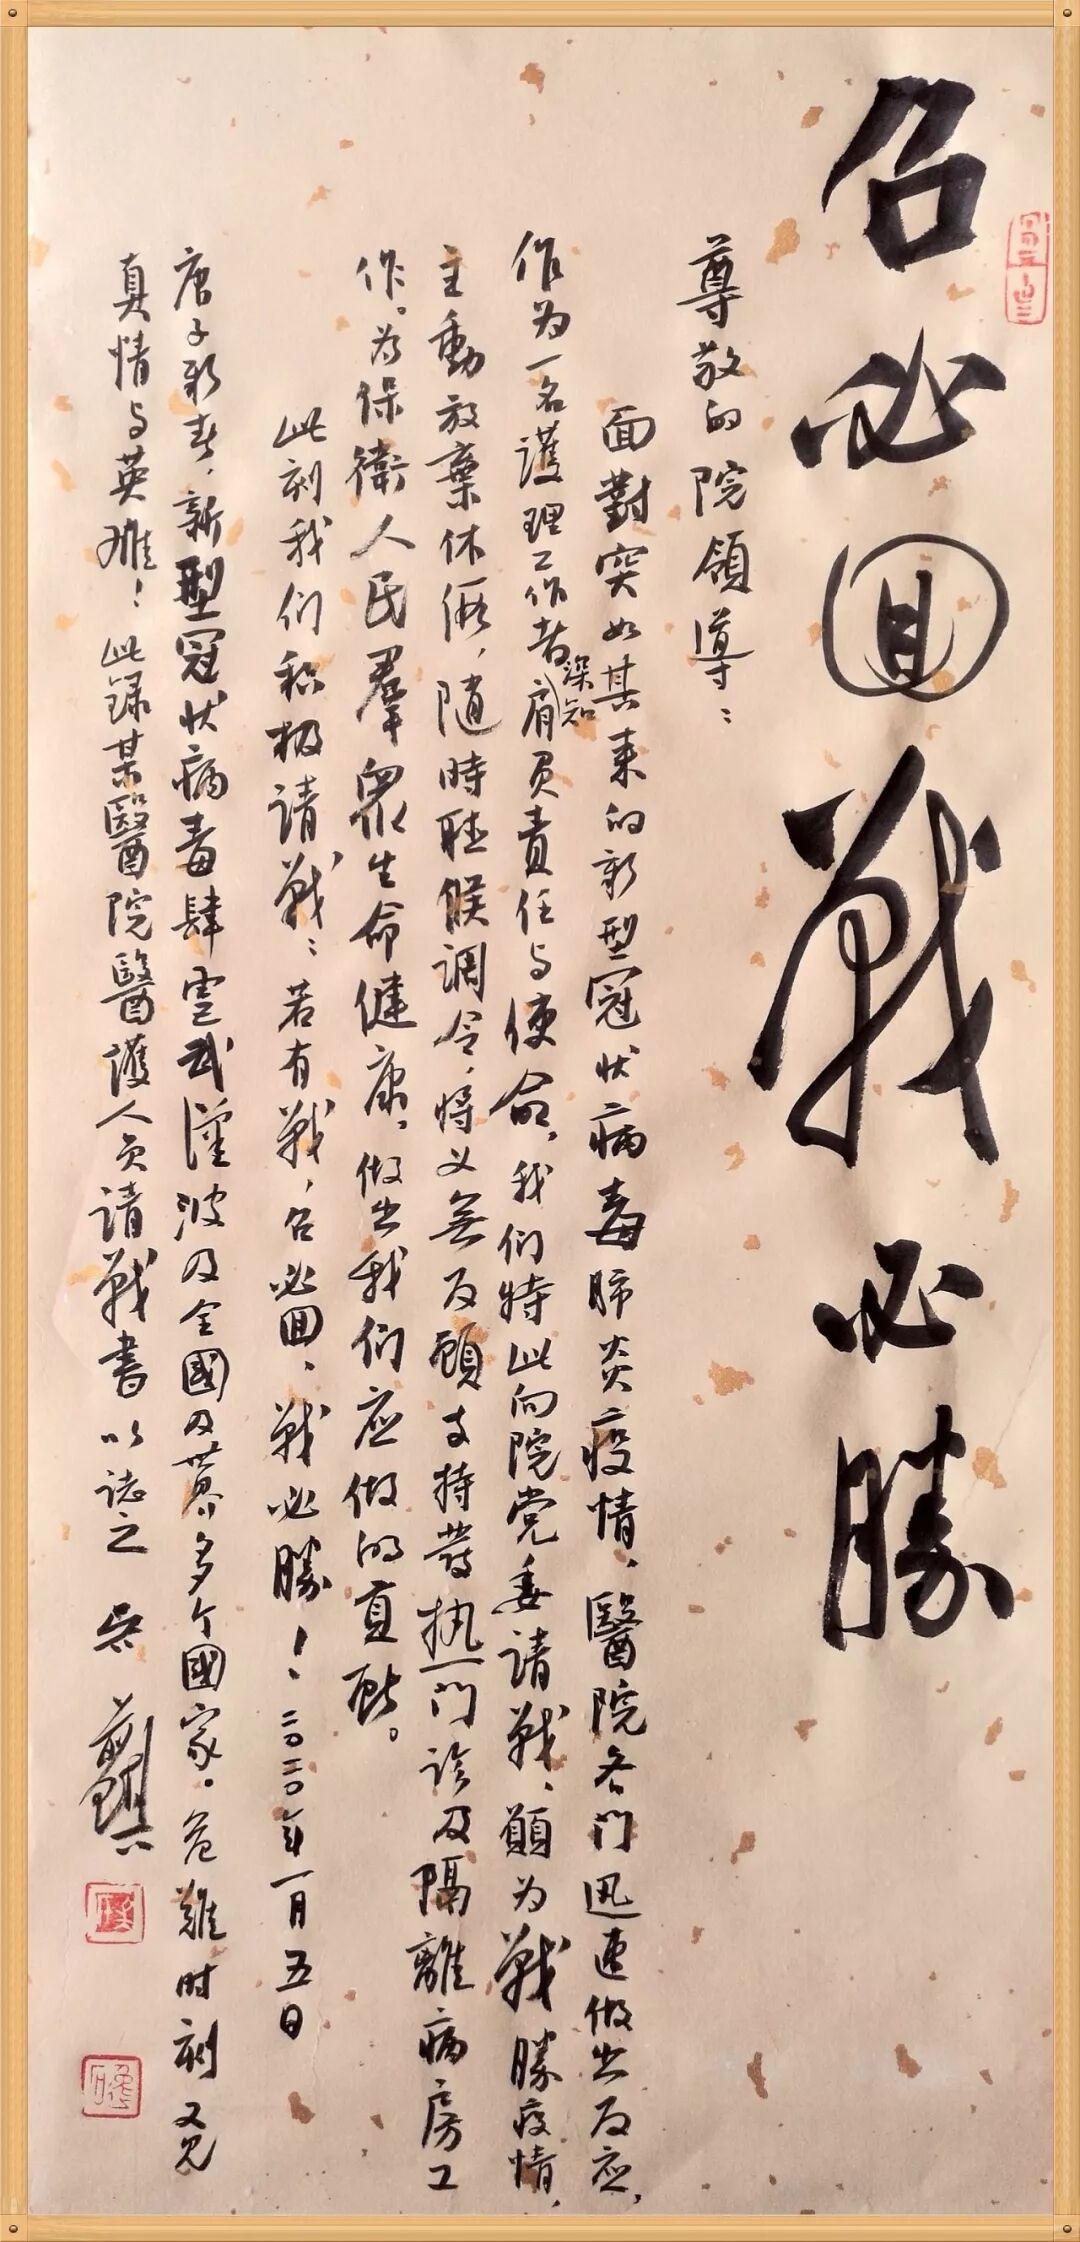 召必回战必勝
尊敬的院領導：
面對突如其来的新型冠状病毒肺炎疫情，醫院各门迅速做出反应，
作为一名護理工作者深知肩負責任与使命，我们特此向院党委請戰，願为戰勝疫情，
主動放棄休假，随時聴候調令，将义無反顧支持發热门诊及隔離病房工
作。为保衛人民羣衆生命健康，做出我们应做的貢献。
此刻我们积极請戰：若有戰，召必回，戰必勝！二〇二〇年一月五日
庚子新春，新型冠状病毒肆虐武漢波及全國及世界多个國家。危難时刻又见
真情与英雄！此録某醫院醫護人员請戰書以誌之